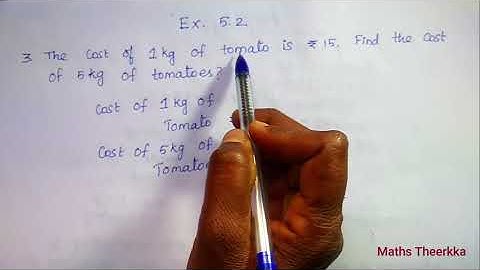 Ex. 5.2.
3 The Cost of 1 kg of tomato is ₹ 15. Find the Cost
of 5 kg of tomatoes?
Cost of 1 kg of
Tomato
Cost of 5 kg of
Tomato
Maths Theerkka